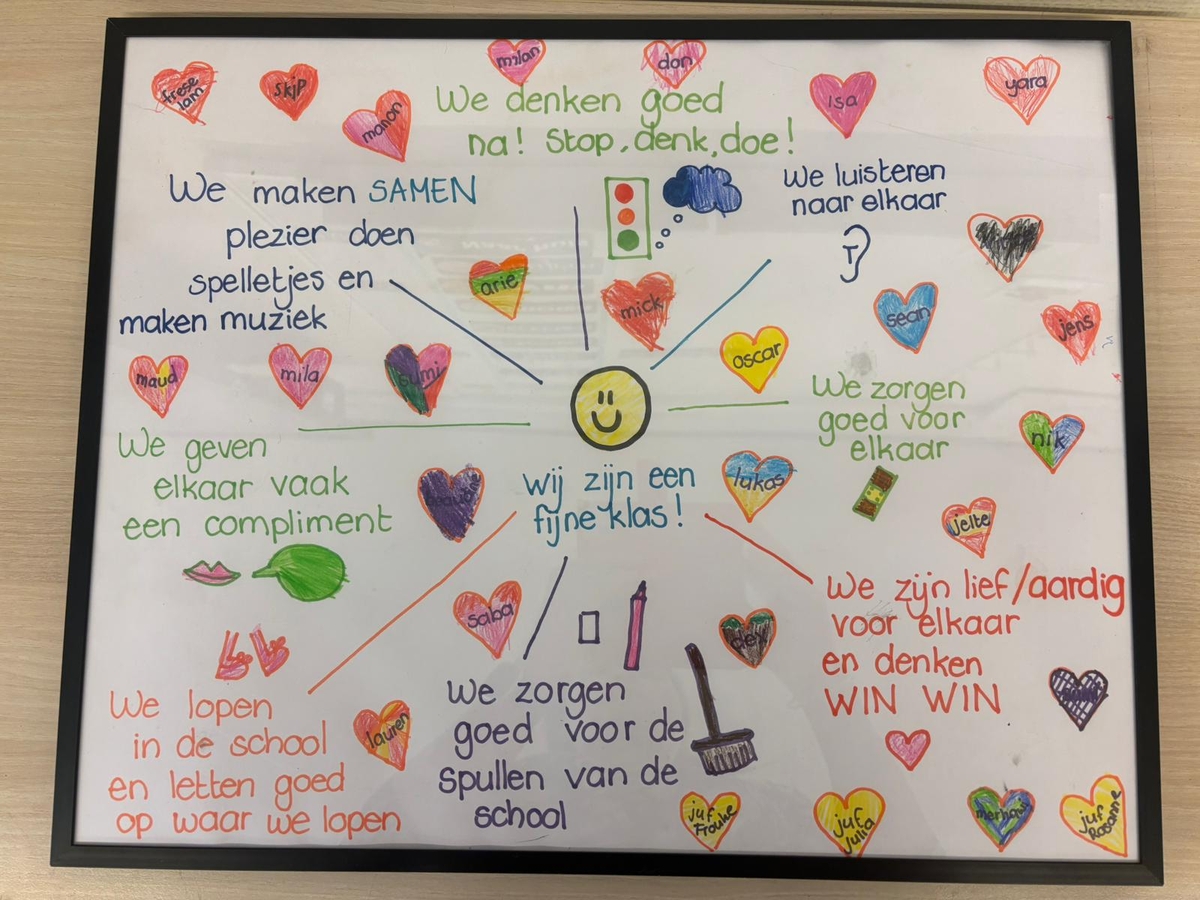 milan
don
frese
lam
skip
manon
isa
yara
We denken goed
na! Stop, denk, doe!
We maken SAMEN
plezier doen
spelletjes en
maken muziek
We luisteren
naar elkaar
arie
mick
sean
jens
oscar
maud
mila
sumir
We zorgen
goed voor
elkaar
nik
We geven
elkaar vaak
een compliment
wij zijn een
fijne klas!
lukas
jelte
We zijn lief/aardig
voor elkaar
en denken
WIN WIN
saba
dex
We lopen
in de school
en letten goed
op waar we lopen
lauren
We zorgen
goed voor de
spullen van de
school
juf
Frouke
juf
Julia
juf
Rosanne